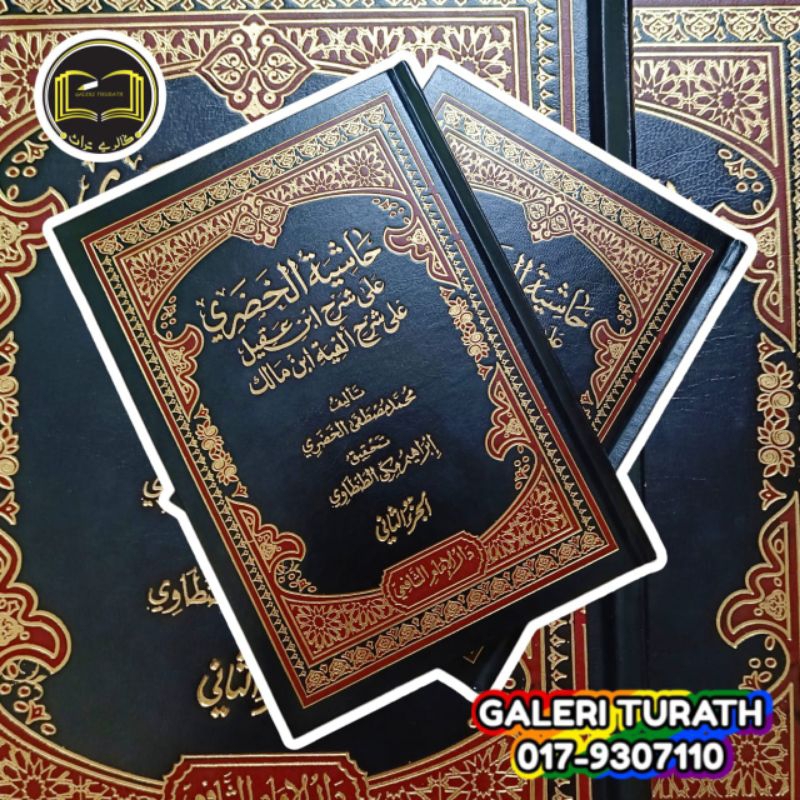 GALERI TURATH
ݢالري تراث
حَاشِيَة الخَضَرِي
عَلى شَرح ابن عَقيل
عَلى شَرح ألفية ابن مَالك
تأليف
محمد مصطفى الخضري
تحقيق
إبراهيم مكي الطنطاوي
الجزء الثاني
دار الإمام الشافعي
حَاشِيَة
طاوي
الثاني
دار الإمام الشافعي
GALERI TURATH
017-9307110